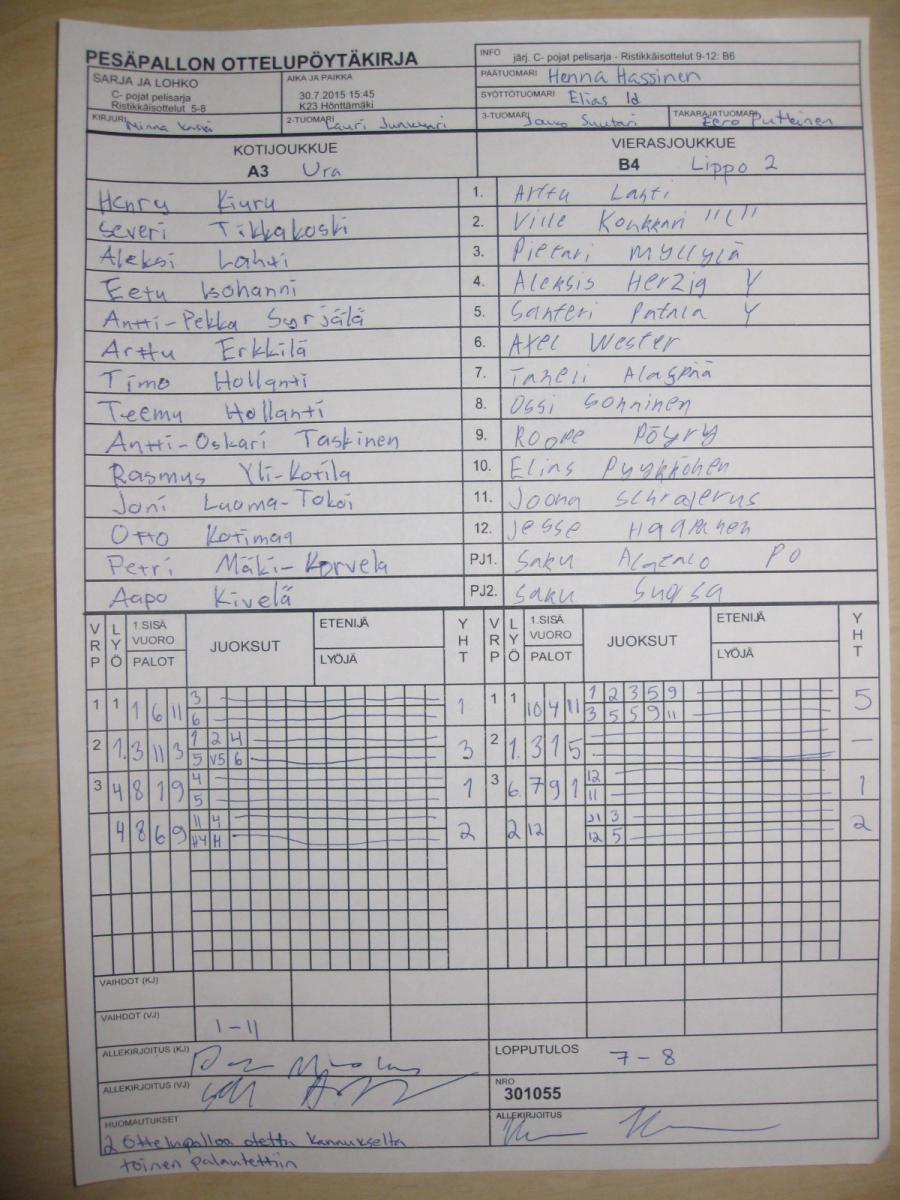 PESÄPALLON OTTELUPÖYTÄKIRJA
INFO järj. C- pojat pelisarja - Ristikkäisottelut 9-12: B6
PÄÄTUOMARI Henna Hassinen
SARJA JA LOHKO
C- pojat pelisarja
Ristikkäisottelut 5-8
AIKA JA PAIKKA
30.7.2015 15:45
K23 Hönttämäki
SYÖTTÖTUOMARI Elias Id
KIRJURI Minna
2-TUOMARI Lauri Junkkari
3-TUOMARI Jouko Suutari
TAKARAJATUOMARI Eero Puttinen
KOTIJOUKKUE
A3 Ura
VIERASJOUKKUE
B4 Lippo 2
Henry Kiuru 1. Arttu Lahti
Severi Tikkakoski 2. Ville Konkkari "L"
Aleksi Lahti 3. Pietari Myllylä
Eetu Isohanni 4. Aleksis Herzig Y
Antti-Pekka Syrjälä 5. Santeri Patala Y
Arttu Erkkilä 6. Axel Wester
Timo Hollanti 7. Taneli Alaspää
Teemu Hollanti 8. Ossi Sonninen
Antti-Oskari Taskinen 9. Roope Pöyry
Rasmus Yli-Kotila 10. Elias Pyykkönen
Joni Luoma-Tokoi 11. Joona Schroderus
Otto Kotimaa 12. Jesse Haapanen
Petri Mäki-Korvela PJ1. Saku Alatalo PO
Aapo Kivelä PJ2. Saku Suasa
VRP LYÖ 1.SISÄ VUORO PALOT JUOKSUT ETENIJÄ LYÖJÄ YHT VRP LYÖ 1.SISÄ VUORO PALOT JUOKSUT ETENIJÄ LYÖJÄ YHT
1 1 1 6 11 3 1 1 1 10 4 11 1 2 3 5 9 5
6 3 5 5 9 11
2 1. 3 11 3 1 2 4 3 2 1. 3 1 5 —
5 V5 6
3 4 8 1 9 4 1 3 6. 7 9 1 12 1
5 11
4 8 6 9 11 4 2 2 12 11 3 2
H4 H 12 5
VAIHDOT (KJ)
VAIHDOT (VJ) 1-11
ALLEKIRJOITUS (KJ)
LOPPUTULOS 7-8
ALLEKIRJOITUS (VJ)
NRO
301055
HUOMAUTUKSET
ALLEKIRJOITUS
2 Ottelupalloa otettu Kannukselta
toinen palautettiin